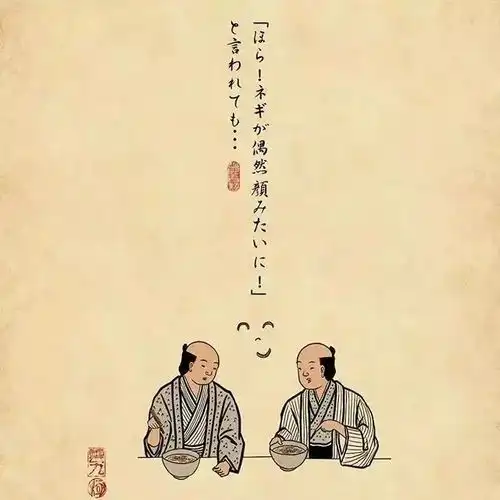 「ほら！ネギが偶然顔みたいに！」
と言われても・・・